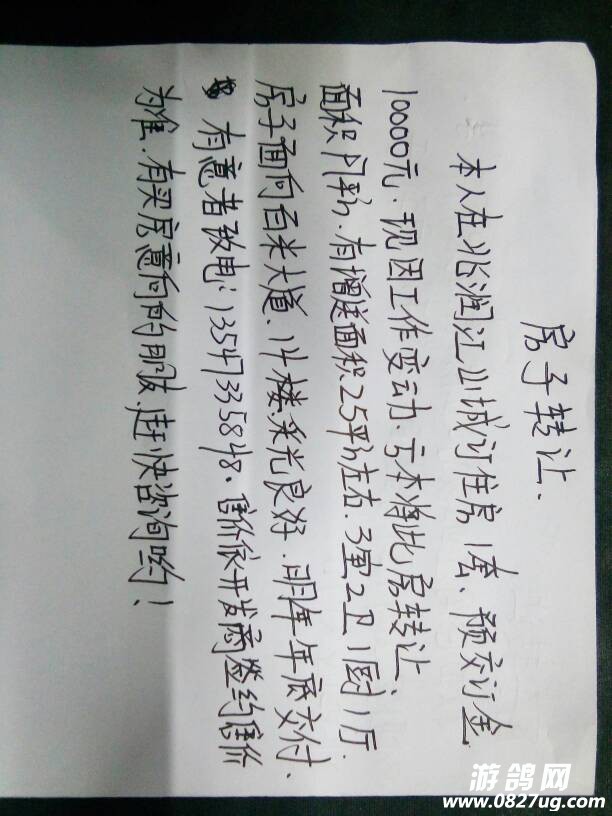 房子转让.
本人在兆润江山城订住房1套、预交订金
10000元.现因工作变动.亏本将此房转让、
面积 平称.有增送面积25平方左右.3室2卫1厨1厅.
房子面向百米大道、 楼.采光良好.明年年底交付.
有意者致电:13547335848.售价依开发商签约售价
为准.有买房意向的朋友.赶快咨询哟!
游鸽网
www.0827ug.com